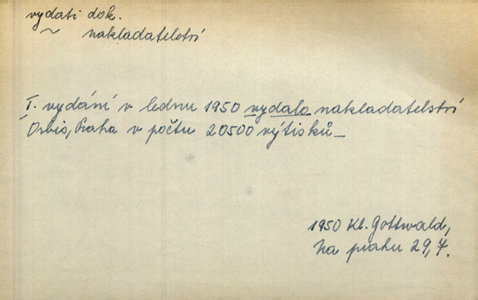 vydati dok.
~ nakladatelství
I. vydání v lednu 1950 vydalo nakladatelství
Orbis, Praha v počtu 20500 výtisků_
1950 Kl. Gottwald,
Na prahu 29, 4.